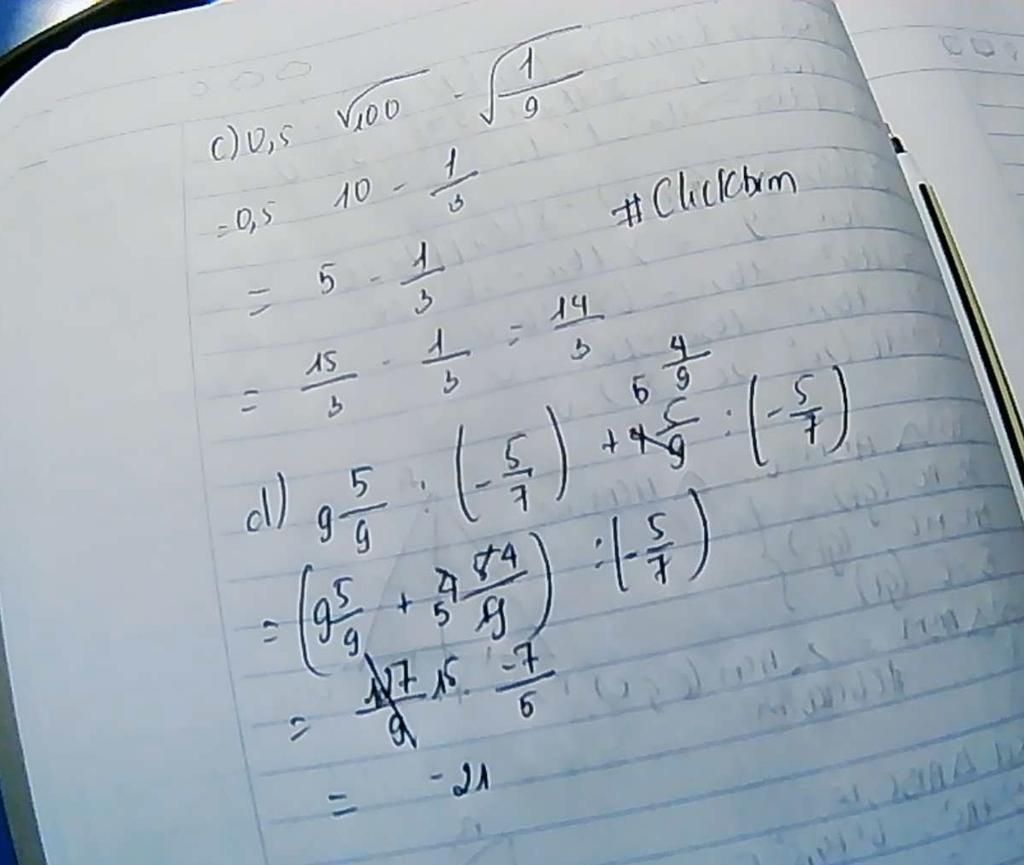 c) 0,5 √100 - √(1/9)
= 0,5 10 - 1/3
#Clickbim
= 5 - 1/3
= 15/3 - 1/3 = 14/3
d) 9 5/9 : (-5/7) + 5 4/9 : (-5/7)
= (9 5/9 + 5 4/9) : (-5/7)
= 15 . -7/5
= -21